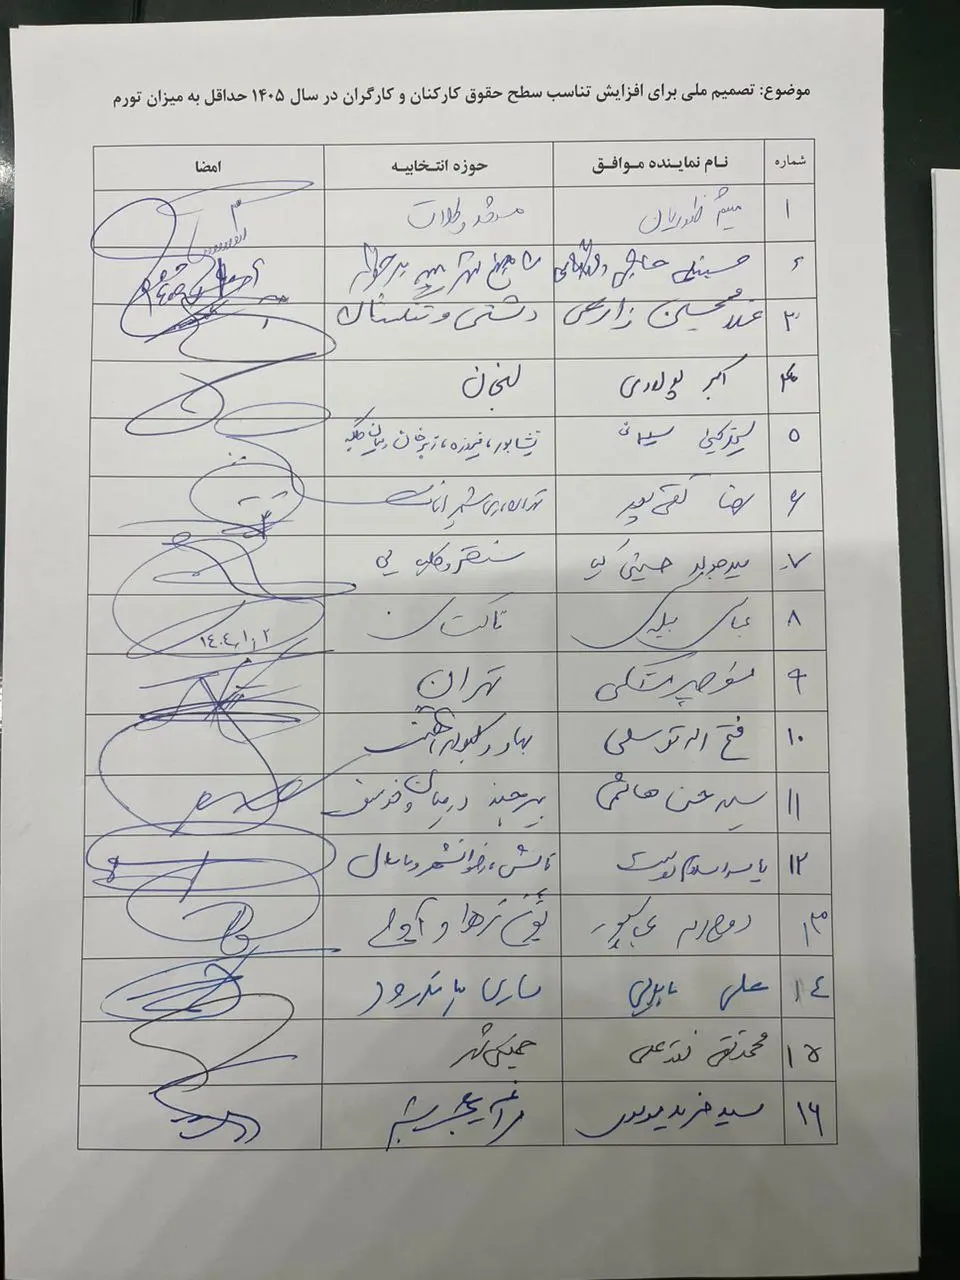 موضوع: تصمیم ملی برای افزایش تناسب سطح حقوق کارکنان و کارگران در سال ۱۴۰۵ حداقل به میزان تورم
شماره نـام نماینـده مـوافـق حوزه انتـخابیـه امضا
۱ میثم ظهوریان مشهد و کلات
۲ حسینعلی حاجی دلیگانی شاهین شهر میمه برخوار
۳ غلامحسین زارعی دشتی و تنگستان
۴ اکبر پولادی لنجان
۵ سلیمانی نیشابور، فیروزه، زبرخان، میان جلگه
۶ رضا تقی پور تهران، ری، شمیرانات
۷ سید جواد حسینی کیا سنقر و کلیایی
۸ عباس بیگدلی تاکستان ۱۴۰۴/۱۰/۲
۹ تهران
۱۰ فتح اله توسلی بهار و کبودرآهنگ
۱۱ سید حسن هاشمی بیرجند درمیان و خوسف
۱۲ تالش، رضوانشهر و ماسال
۱۳ روح اله عباسپور بوئین زهرا و آوج
۱۴ علی بابایی ساری میاندرود
۱۵ محمدتقی نقدعلی خمینی شهر
۱۶ سید فرید موسوی مراغه عجب شیر